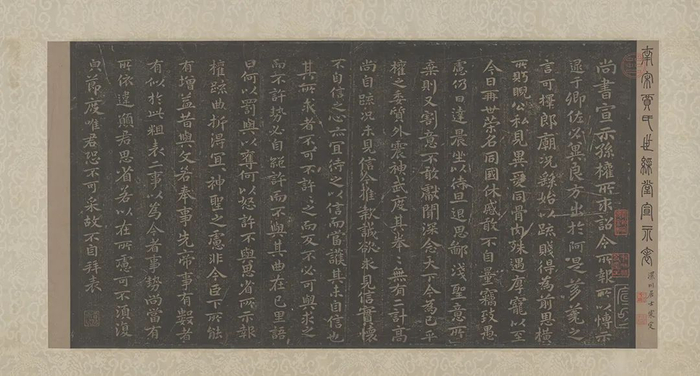 南宋賈氏世綵堂宣示表
尚書宣示孫權所求詔令所報所以博示
逮于卿佐必冀良方出於阿是芻蕘之
言可擇郎廟況繇始以疏賤得為前恩橫
所盱睨公私見異愛同骨肉殊遇厚寵以至
今日再世榮名同國休慼敢不自量竊致愚
慮仍日達晨坐以待旦退思鄙淺聖意所
棄則又割意不敢獻聞深念天下今為已平
權之委質外震神武度其拳々無有二計高
尚自疏況未見信今推款誠欲求見信實懷
不自信之心亦宜待之以信而當護其未自信也
其所求者不可不許々之而反不必可與求之
而不許勢必自絕許而不與其曲在己里語
曰何以罰與以奪何以怒許不與思省所示報
權疏曲折得宜々神聖之慮非今臣下所能
有增益昔與文若奉事先帝事有數者
有似於此粗表二事以為今者事勢尚當有
所依違願君思省若以在所慮可不須復
㒵節度唯君恐不可采故不自拜表